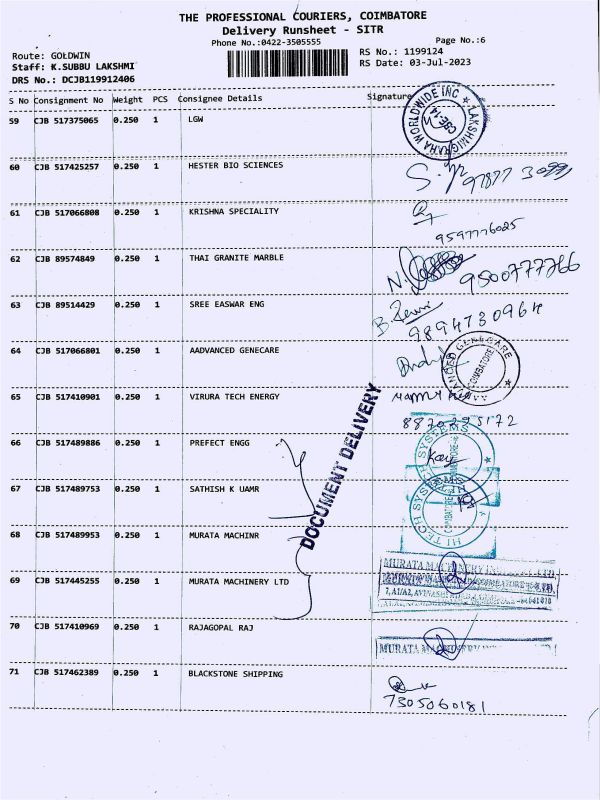 THE PROFESSIONAL COURIERS, COIMBATORE
Delivery Runsheet - SITR
Phone No.:0422-3505555 Page No.:6
Route: GOLDWIN RS No.: 1199124
Staff: K.SUBBU LAKSHMI RS Date: 03-Jul-2023
DRS No.: DCJB119912406
S No Consignment No Weight PCS Consignee Details Signature
59 CJB 517375065 0.250 1 LGW
LAKSHMIGRAHA WORLDWIDE INC
CBE-14
60 CJB 517425257 0.250 1 HESTER BIO SCIENCES
61 CJB 517066808 0.250 1 KRISHNA SPECIALITY
9597776025
62 CJB 89574849 0.250 1 THAI GRANITE MARBLE
N. 9500777766
63 CJB 89514429 0.250 1 SREE EASWAR ENG
9894730964
64 CJB 517066801 0.250 1 AADVANCED GENECARE
COIMBATORE
65 CJB 517410901 0.250 1 VIRURA TECH ENERGY
66 CJB 517489886 0.250 1 PREFECT ENGG
DOCUMENT DELIVERY
67 CJB 517489753 0.250 1 SATHISH K UAMR
HI TECH SYSTEMS
COIMBATORE
68 CJB 517489953 0.250 1 MURATA MACHINR
69 CJB 517445255 0.250 1 MURATA MACHINERY LTD
70 CJB 517410969 0.250 1 RAJAGOPAL RAJ
71 CJB 517462389 0.250 1 BLACKSTONE SHIPPING
7305060181